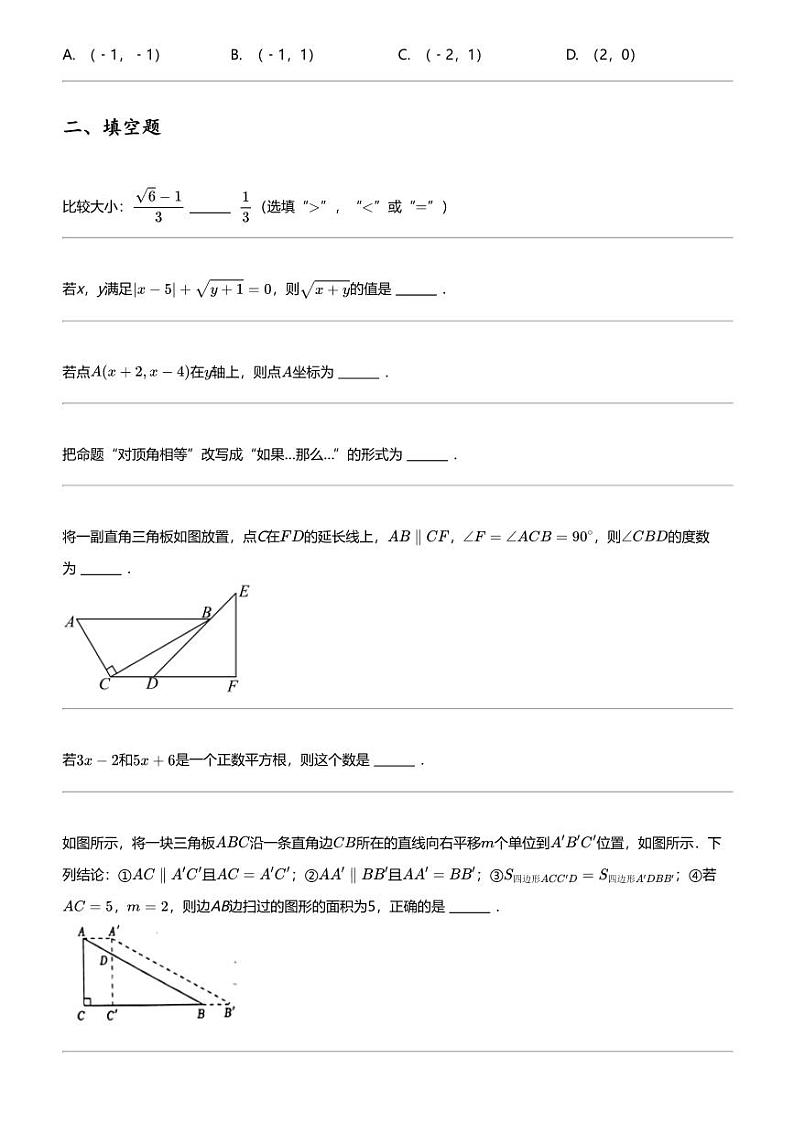 A. （﹣1，﹣1） B. （﹣1，1） C. （﹣2，1） D. （2，0）
二、填空题
比较大小：$\frac{\sqrt{6}-1}{3}$ ______ $\frac{1}{3}$（选填“>”，“<”或“=”）
若x，y满足$|x-5|+\sqrt{y+1}=0$，则$\sqrt{x+y}$的值是 ______ ．
若点$A(x+2,x-4)$在y轴上，则点A坐标为 ______ ．
把命题“对顶角相等”改写成“如果…那么…”的形式为 ______ ．
将一副直角三角板如图放置，点C在FD的延长线上，AB ∥ CF，∠F = ∠ACB = 90°，则∠CBD的度数
为 ______ ．
E
B
A
C D F
若3x − 2和5x + 6是一个正数平方根，则这个数是 ______ ．
如图所示，将一块三角板ABC沿一条直角边CB所在的直线向右平移m个单位到A′B′C′位置，如图所示．下
列结论：①AC ∥ A′C′且AC = A′C′；②AA′ ∥ BB′且AA′ = BB′；③$S_{四边形ACC′D}=S_{四边形A′DBB′}$；④若
AC = 5，m = 2，则边AB边扫过的图形的面积为5，正确的是 ______ ．
A A′
D
C C′ B B′